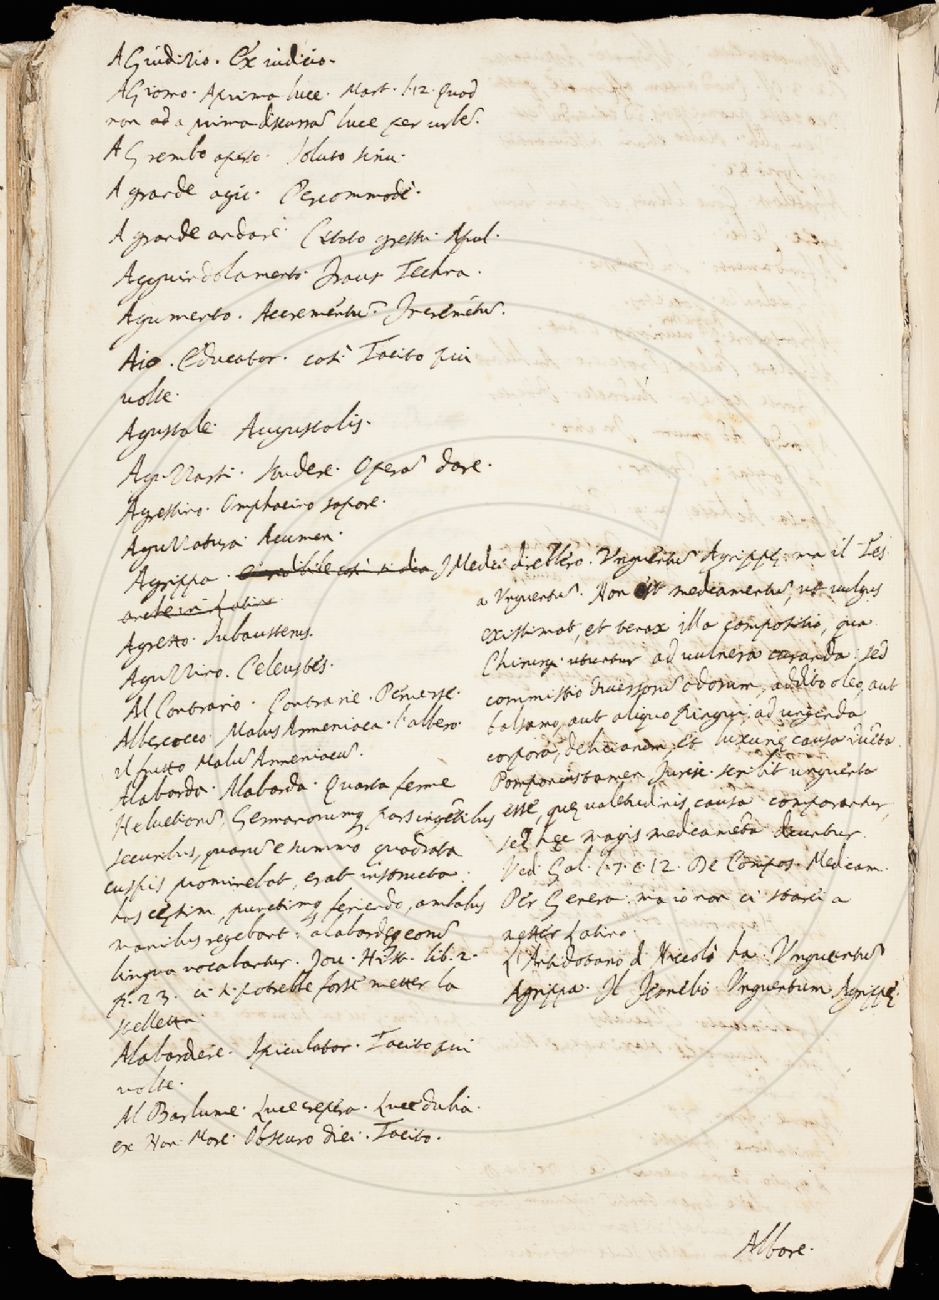 A Giudizio. Ex iudicio.
A Giorno. A prima luce. Mart. l. 12. Quod
non ad a prima discussa luce per urbē.
A Grembo aperto. Soluto sinu.
A grande agio. Percommodè.
A grande andare. Citato gressu. Apul.
Agguindolamento. Fraus Techna.
Agumento. Accremētū. Incremētū.
Aio. Educator. così Tacito piu
volte.
Agustale. Augustalis.
Aguzzarsi. Studere. Operā dare.
Agrestino. Omphacino sapore.
Aguzzatura. Acumen.
Agrippa. I Medici direbbero. Unguentū Agrippę: ma il Tes
a Unguentū. Non est medicamentū, ut vulgus
existimat, et verax illa compositio, qua
Chirurgi utuntur ad vulnera curanda: sed
commistio diversorū odorum, addito oleo, aut
balsamo, aut aliquo pingui, ad ungenda
corpora, deliciarum, et luxurię causa ducta.
Pomponius tamen Iurisc. scribit unguenta
esse, quę valetudinis causa comparantur,
sed hęc magis medicamēta dicuntur.
Ved. Gal. l. 7. c. 12. De Compos. Medicam.
Per Genera. ma io non ci starei a
metter Latino.
L'Antidotario di Niccolò ha. Unguentū
Agrippa. Il Fernelio Unguentum Agrippę.
Agretto. Subausterus.
Aguzzino. Celeustes.
Al Contrario. Contrarie. Perverse.
Albercocco. Malus Armeniaca. l'albero.
il frutto Malū Armeniacū.
Alabarda. Alabarda. Quarta ferme
Helvetiorū, Germanorumq pars ingētibus
securibus, quarū e summo quadrata
cuspis prominebat, erat instructa:
has cęsim, punctimq feriendo, ambabus
manibus regebant: alabardas eorū
lingua vocabantur. Jov. Hist. lib. 2.
p. 23. ci si potrebbe forse metter la
stelletta.
Alabardiere. Spiculator. Tacito piu
volte.
Al Barlume. Luce crepera. Luce dubia.
ex Non. More. Obscuro diei. Tacito.
Albore.